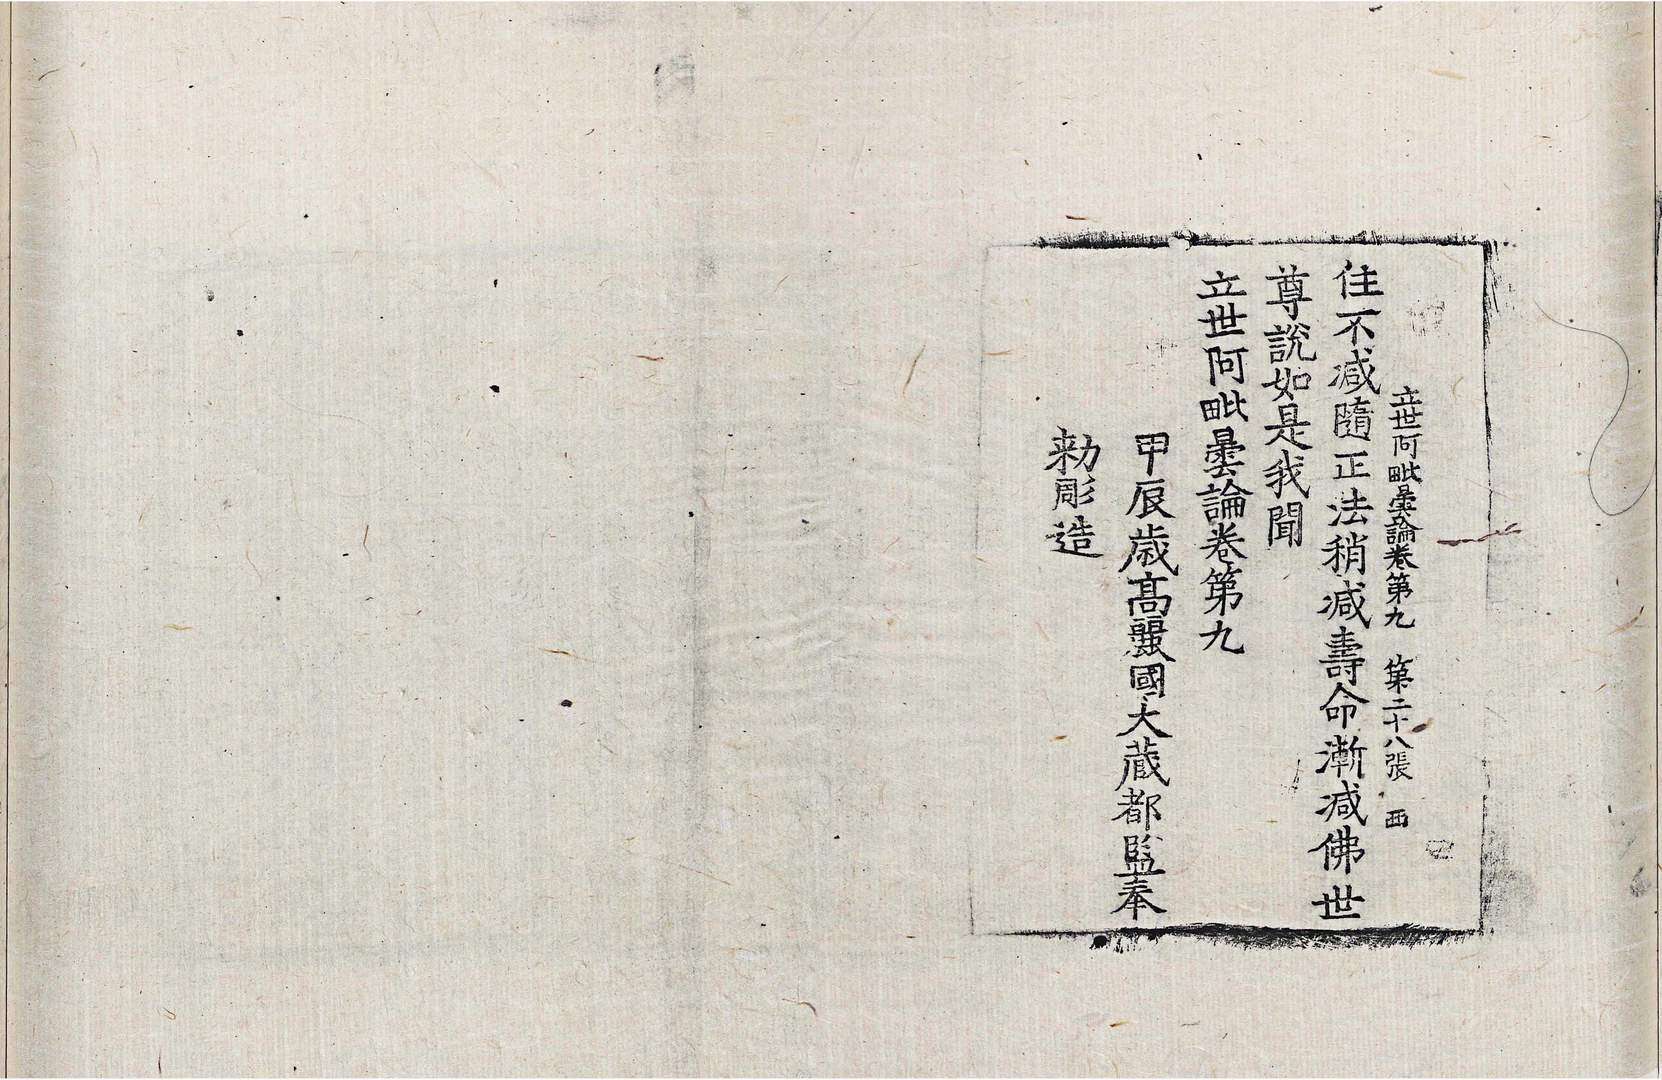 立世阿毗曇論卷第九 第二十八張 西
住不减隨正法稍减壽命漸减佛世
尊說如是我聞
立世阿毗曇論卷第九
甲辰歳高麗國大藏都監奉
勑彫造